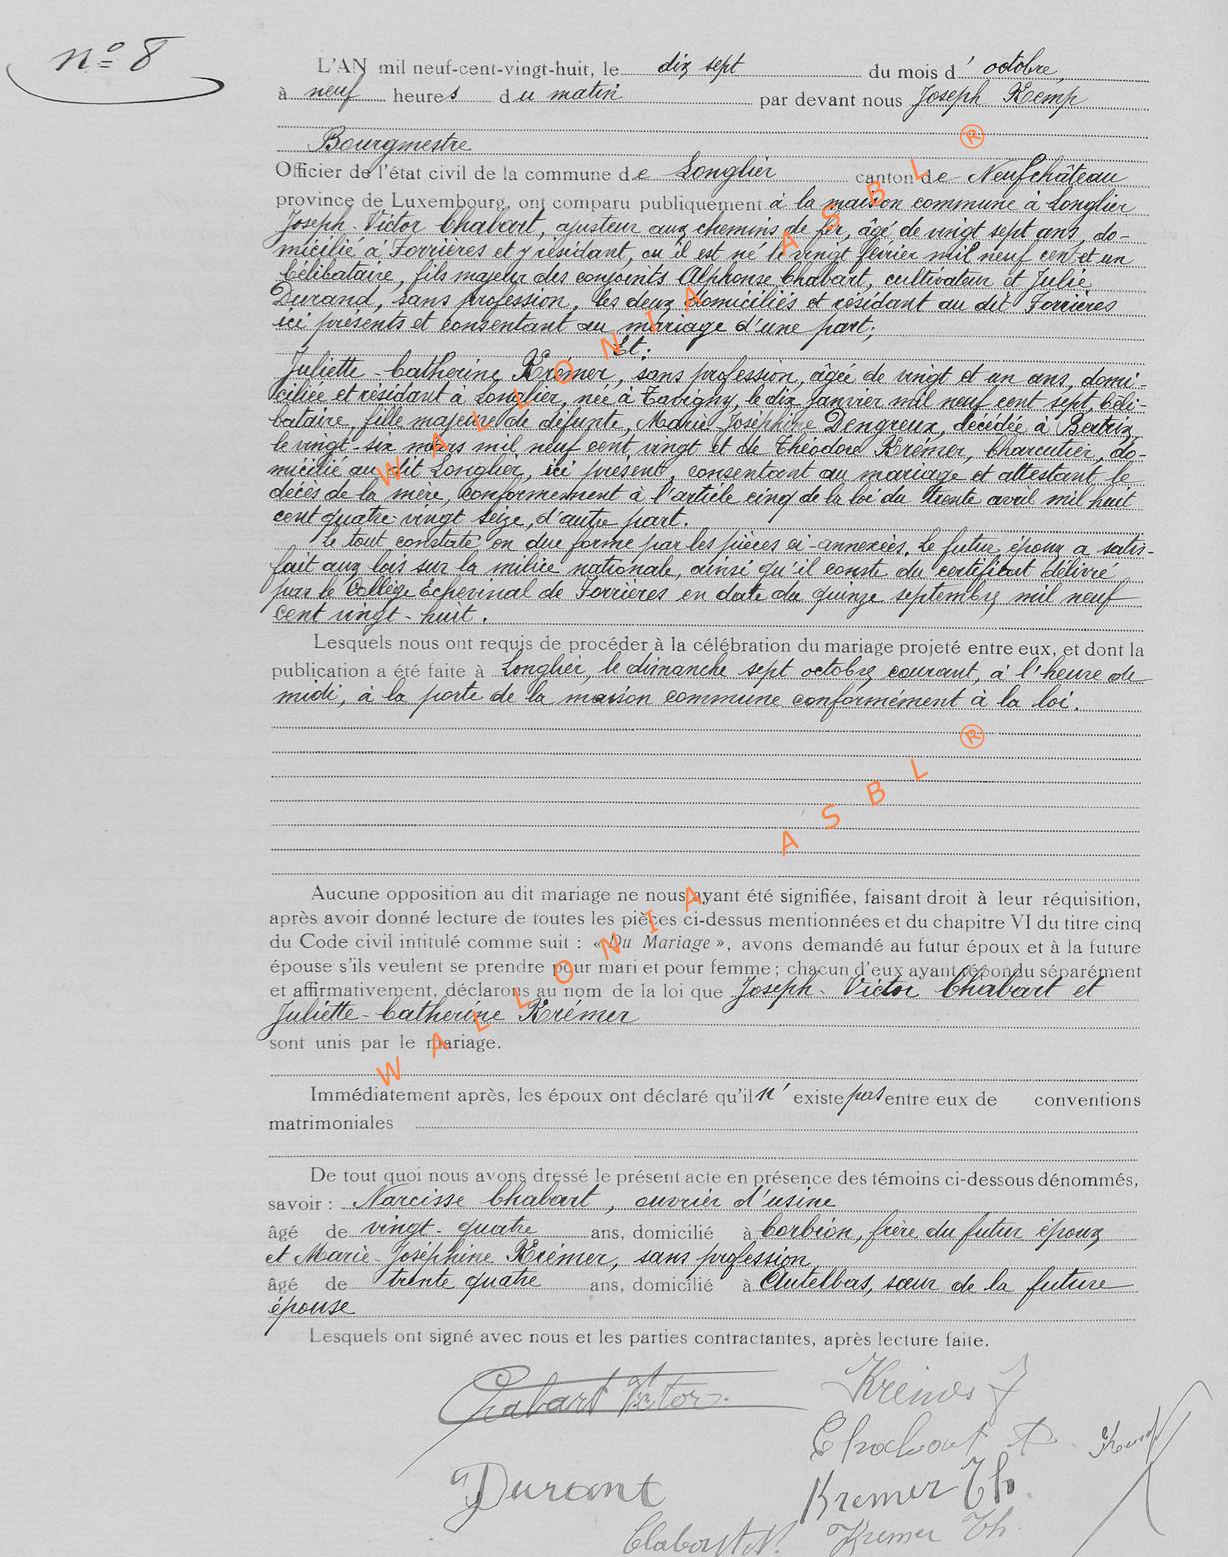 n° 8
L'AN mil neuf-cent-vingt-huit, le dix sept du mois d' octobre,
à neuf heures du matin par devant nous Joseph Kemp
Bourgmestre
Officier de l'état civil de la commune de Longlier canton de Neufchâteau
province de Luxembourg, ont comparu publiquement à la maison commune à Longlier
Joseph-Victor Chabart, ajusteur aux chemins de fer, âgé de vingt sept ans, do-
micilié à Forrières et y résidant, où il est né le vingt février mil neuf cent et un
Célibataire, fils majeur des conjoints Alphonse Chabart, cultivateur et Julie
Durand, sans profession, les deux domiciliés et résidant au dit Forrières
ici présents et consentant au mariage d'une part;
Et:
Juliette-Catherine Krémer, sans profession, âgée de vingt et un ans, domi-
ciliée et résidant à Longlier, née à Tavigny, le dix Janvier mil neuf cent sept, Céli-
bataire, fille majeure de défunte, Marie Joséphine Dengreux, décédée à Bertrix
le vingt-six mars mil neuf cent vingt et de Théodore Krémer, charcutier, do-
micilié au dit Longlier, ici présent, consentant au mariage et attestant le
décès de la mère, conformément à l'article cinq de la loi du trente avril mil huit
cent quatre-vingt seize, d'autre part.
Le tout constaté en due forme par les pièces ci-annexées. Le futur époux a satis-
fait aux lois sur la milice nationale, ainsi qu'il conste du certificat délivré
par le Collège Echevinal de Forrières en date du quinze septembre mil neuf
cent vingt-huit.
Lesquels nous ont requis de procéder à la célébration du mariage projeté entre eux, et dont la
publication a été faite à Longlier, le dimanche sept octobre courant, à l'heure de
midi, à la porte de la maison commune conformément à la loi.
Aucune opposition au dit mariage ne nous ayant été signifiée, faisant droit à leur réquisition,
après avoir donné lecture de toutes les pièces ci-dessus mentionnées et du chapitre VI du titre cinq
du Code civil intitulé comme suit : « Du Mariage », avons demandé au futur époux et à la future
épouse s'ils veulent se prendre pour mari et pour femme ; chacun d'eux ayant répondu séparément
et affirmativement, déclarons au nom de la loi que Joseph-Victor Chabart et
Juliette-Catherine Krémer
sont unis par le mariage.
Immédiatement après, les époux ont déclaré qu'il n' existe pas entre eux de conventions
matrimoniales
De tout quoi nous avons dressé le présent acte en présence des témoins ci-dessous dénommés,
savoir : Narcisse Chabart, ouvrier d'usine
âgé de vingt-quatre ans, domicilié à Corbion, frère du futur époux
et Marie-Joséphine Krémer, sans profession
âgé de trente quatre ans, domicilié à Autelbas, sœur de la future
épouse
Lesquels ont signé avec nous et les parties contractantes, après lecture faite.
Chabart Victor. Krémer J
Chabart A
Durant Kremer Th.
Chabart N. Kremer Th.
WALLONIA ASBL ®
WALLONIA ASBL ®